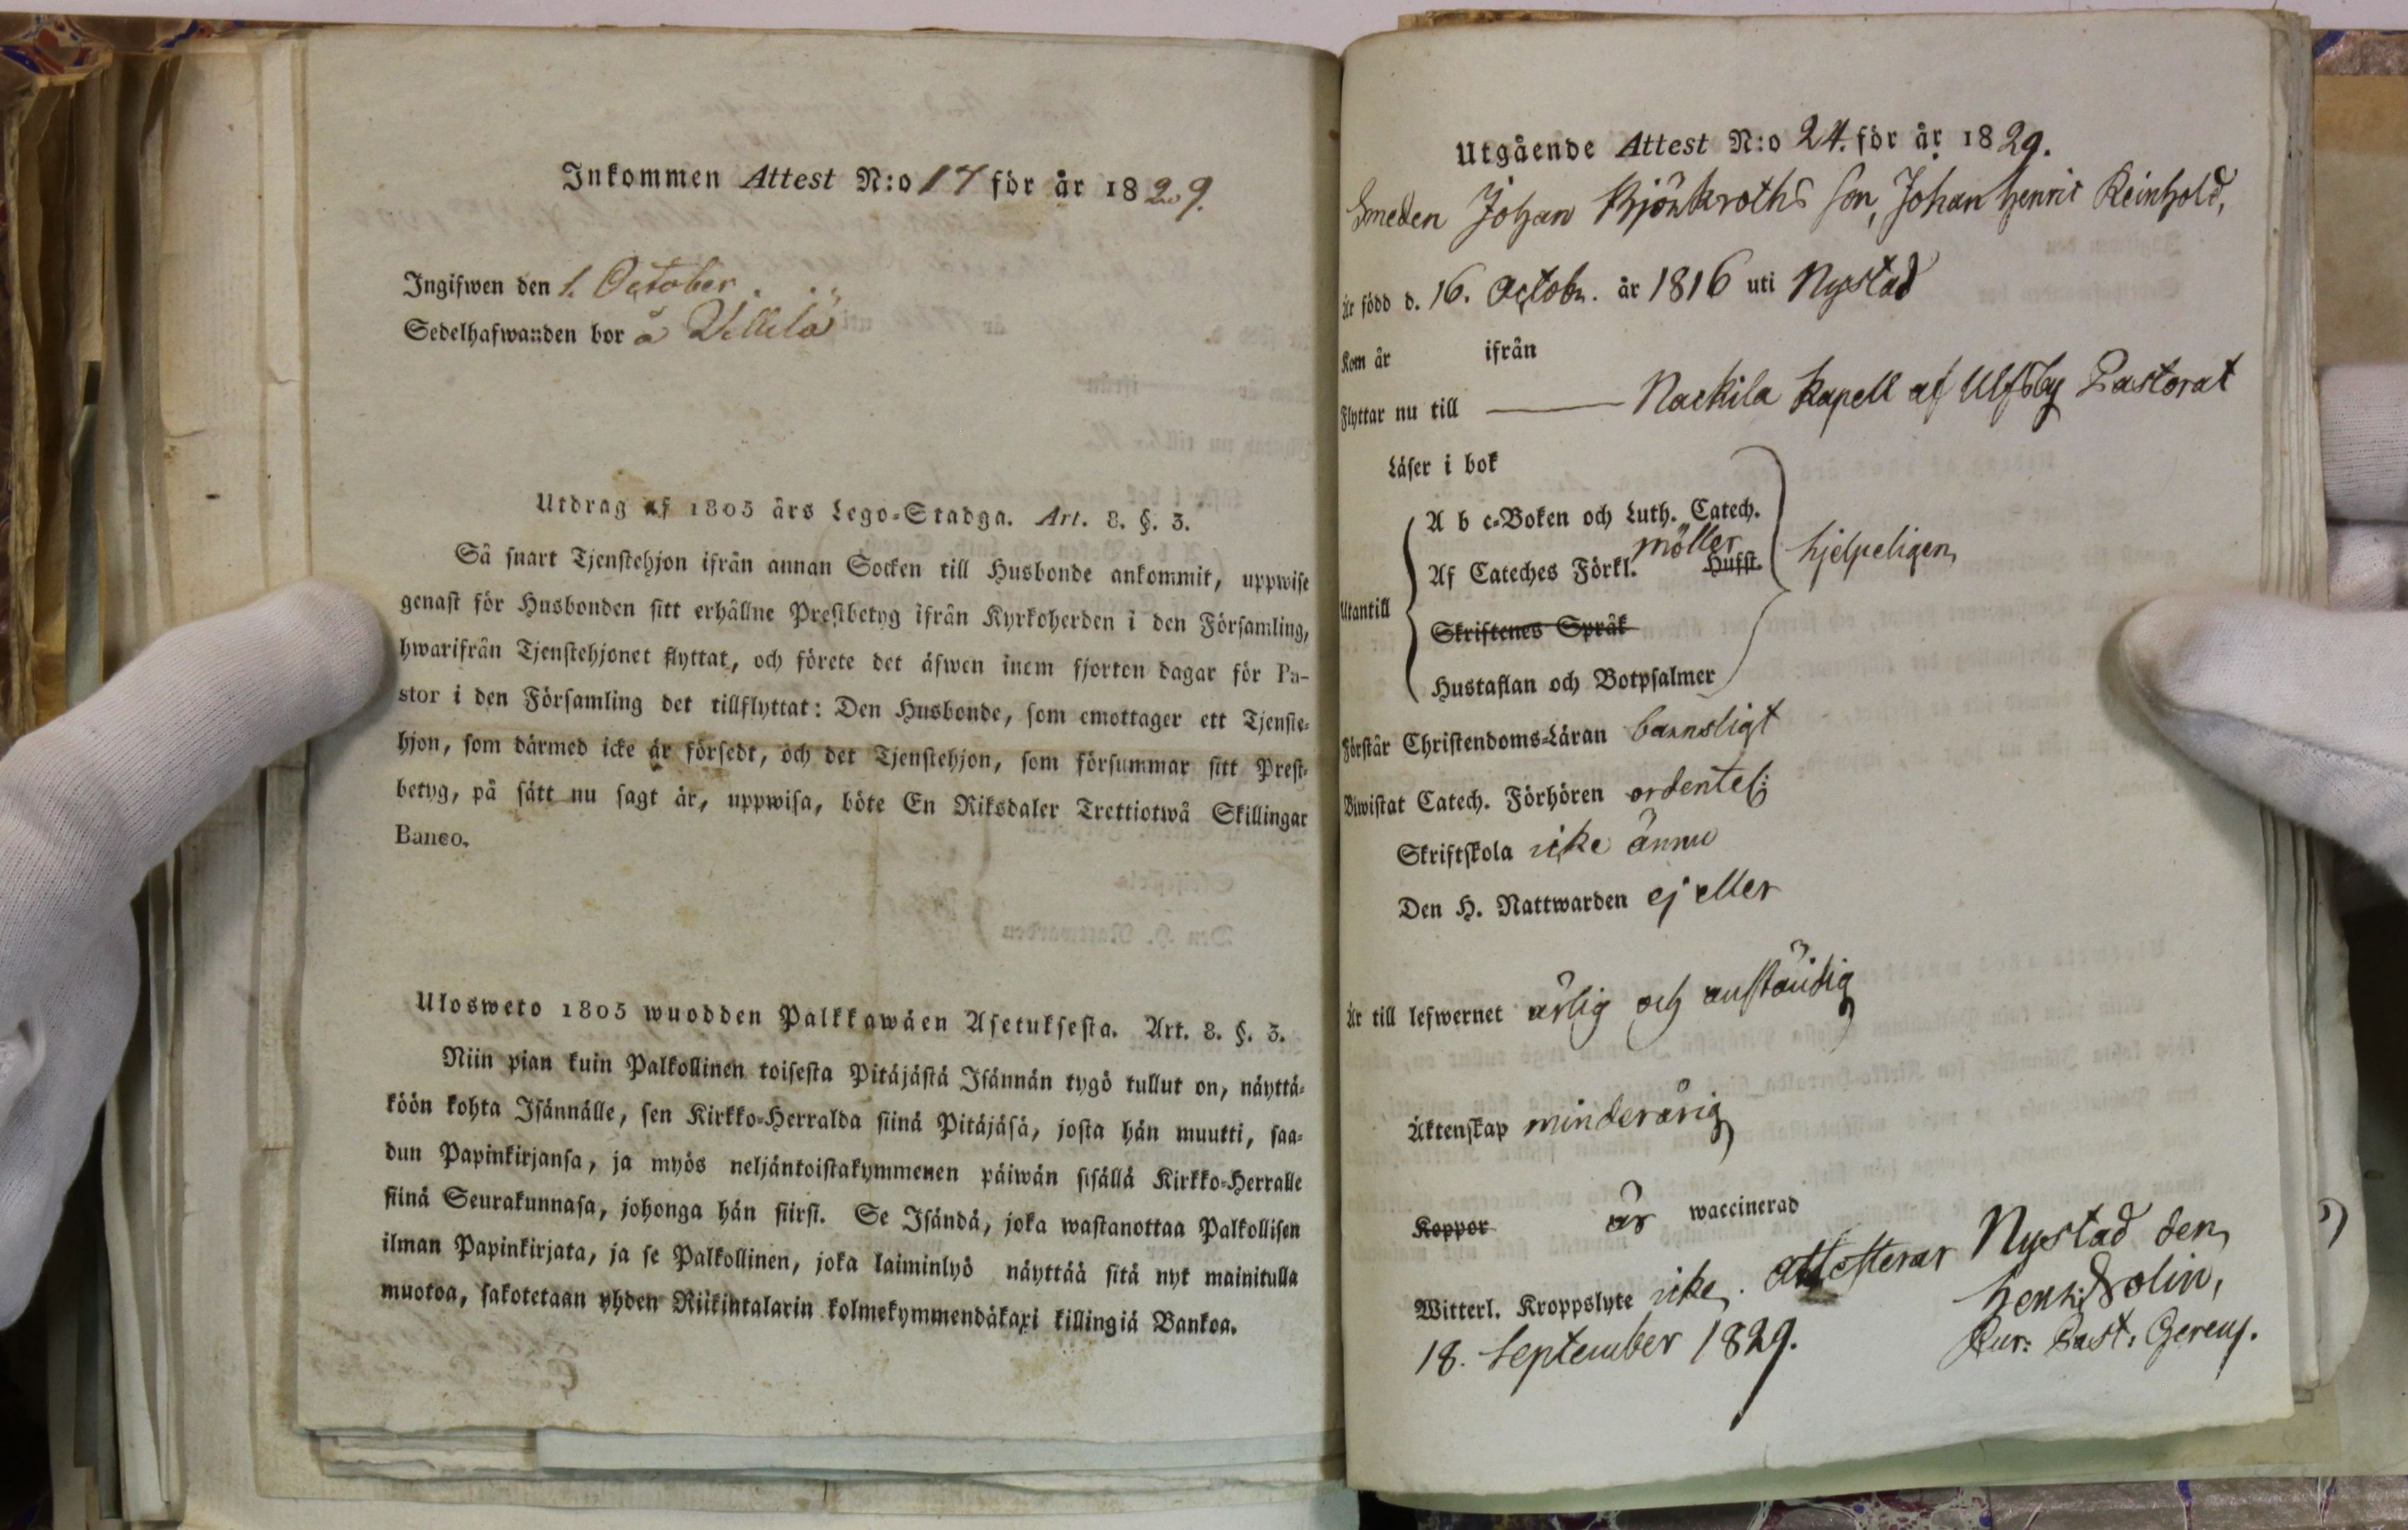 Inkommen Attest N:o 17 för år 1829.
Ingifwen den 1. October.
Sedelhafwanden bor å Villilä
Utdrag af 1805 års Lego-Stadga. Art. 8. §. 3.
Så snart Tjenstehjon ifrån annan Socken till Husbonde ankommit, uppwise
genast för Husbonden sitt erhållne Prestbetyg ifrån Kyrkoherden i den Församling,
hwarifrån Tjenstehjonet flyttat, och förete det äfwen inom fjorton dagar för Pa-
stor i den Församling det tillflyttat: Den Husbonde, som emottager ett Tjenste-
hjon, som därmed icke är försedt, och det Tjenstehjon, som försummar sitt Prest-
betyg, på sätt nu sagt är, uppwisa, böte En Riksdaler Trettiotwå Skillingar
Banco.
Ulosweto 1805 wuodden Palkkawäen Asetuksesta. Art. 8. §. 3.
Niin pian kuin Palkollinen toisesta Pitäjästä Isännän tygö tullut on, näyttä-
köön kohta Isännälle, sen Kirkko-Herralda siinä Pitäjäsä, josta hän muutti, saa-
dun Papinkirjansa, ja myös neljäntoistakymmenen päiwän sisällä Kirkko-Herralle
siinä Seurakunnasa, johonga hän siirsi. Se Isändä, joka wastanottaa Palkollisen
ilman Papinkirjata, ja se Palkollinen, joka laiminlyö näyttää sitä nyt mainitulla
muotoa, sakotetaan yhden Riikintalarin kolmekymmendäkaxi killingiä Bankoa.
Utgående Attest N:o 24. för år 1829.
Smeden Johan Björkroths son, Johan Henric Reinhold,
är född d. 16. Octobr. år 1816 uti Nystad
Kom år ifrån
Flyttar nu till Nackila Kapell af Ulfsby Pastorat
Läser i bok
A b c-Boken och Luth. Catech.
möller
Af Cateches Förkl. Hufst. hjelpeligen
Utantill
Skriftenes Språk
Hustaflan och Botpsalmer
Förstår Christendoms-Läran barnsligt
Biwistat Catech. Förhören ordentel:
Skriftskola icke ännu
Den H. Nattwarden ej eller
Är till lefwernet ärlig och anständig
Äktenskap minderårig
Koppor är waccinerad
Witterl. Kroppslyte icke. attesterar Nystad den
18. September 1829. Henr: Rolin,
Cur: Past: Gerens.